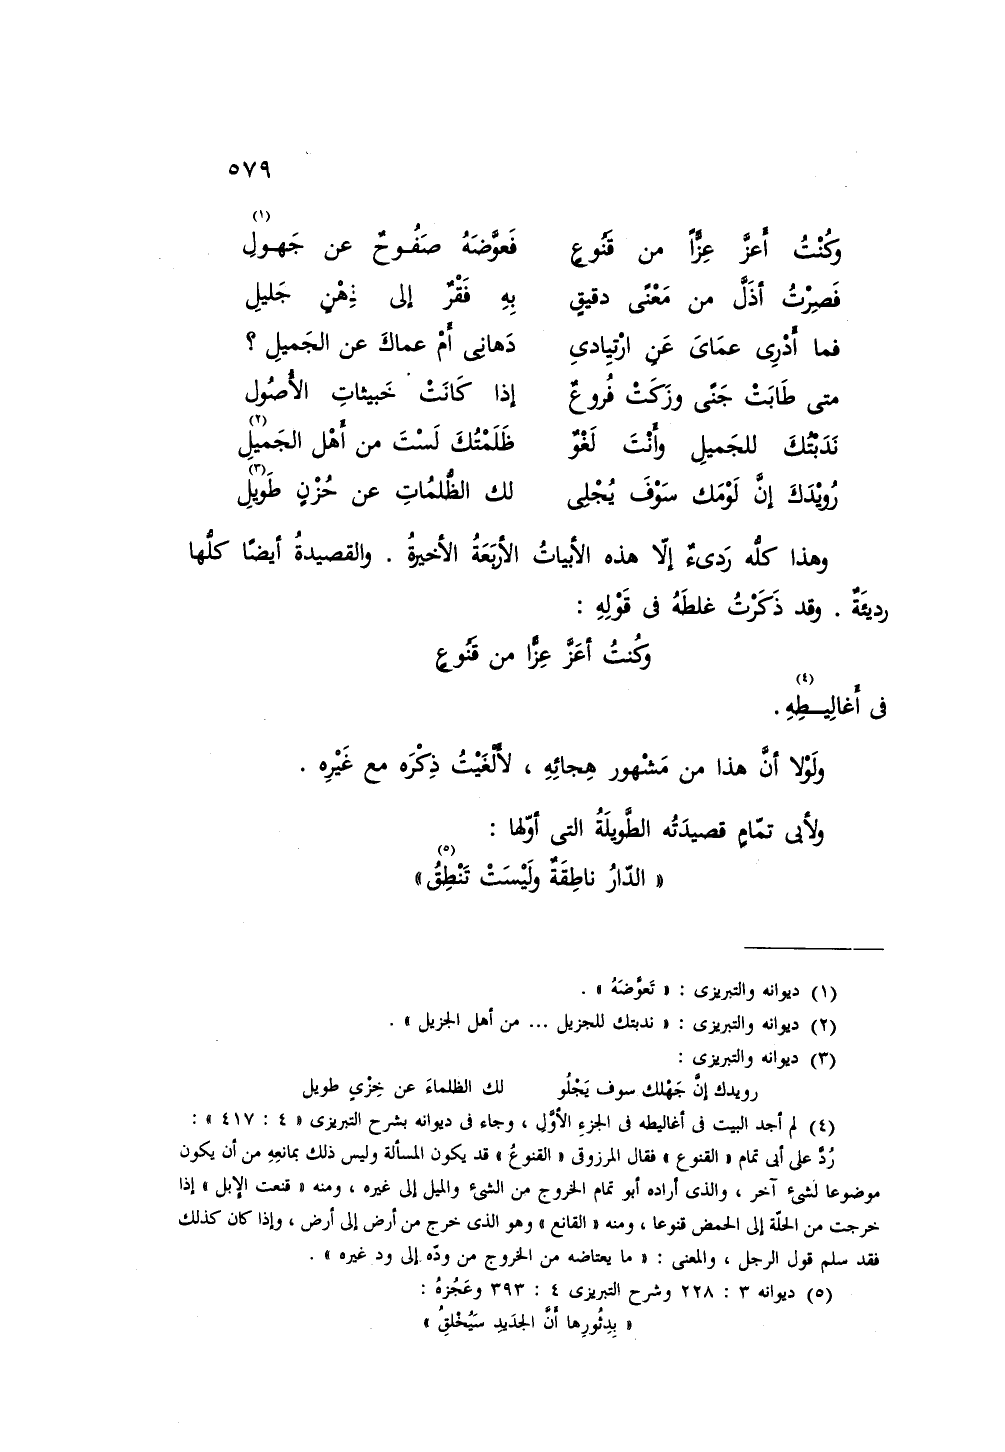 ٥٧٩
وكُنْتُ أَعزَّ عِزًّا من قَنُوعٍ فَعوَّضَهُ صَفُوحٌ عن جَهولِ (١)
فَصِرْتُ أذَلَّ من مَعْنًى دقيقٍ بِهِ فَقْرٌ إلى ذِهْنٍ جَليلِ
فما أَدْرِى عمَاىَ عَنِ ارْتِيادِى دَهانِى أَمْ عماكَ عن الجَميلِ ؟
متى طَابَتْ جَنًى وزَكَتْ فُروعٌ إذا كَانَتْ خَبيثاتِ الأُصُول
نَدَبْتُكَ للجَميلِ وأَنْتَ لَغْوٌ ظَلَمْتُكَ لَسْتَ من أَهْل الجَميلِ (٢)
رُويْدَكَ إنَّ لَوْمَك سَوْفَ يُجْلِى لك الظُّلمُاتِ عن حُزْنٍ طَويلِ (٣)
وهذا كلُّه رَدىءٌ إلّا هذه الأبياتُ الأربَعَةُ الأخيرةُ . والقصيدةُ أيضًا كلُّها
رديئَةٌ . وقد ذَكَرْتُ غلطَهُ فى قَوْلِهِ :
وكُنتُ أعَزَّ عِزًّا من قَنُوعٍ
فى أَغالِيطِهِ (٤) .
ولَوْلا أنَّ هذا من مَشْهور هِجائِهِ ، لأَلْغَيْتُ ذِكْرَه مع غَيْرِه .
ولأبى تمّامٍ قصيدَتُه الطَّويلَةُ التى أوّلها :
« الدّارُ ناطِقَةٌ ولَيْسَتْ تَنْطِقُ (٥) »
(١) ديوانه والتبريزى : « تَعوَّضَهُ » .
(٢) ديوانه والتبريزى : « ندبتك للجزيل ... من أهل الجزيل » .
(٣) ديوانه والتبريزى :
رويدك إنَّ جَهْلك سوف يَجْلُو لك الظلماءَ عن خِزْىٍ طويل
(٤) لم أجد البيت فى أغاليطه فى الجزءِ الأوَّل ، وجاء فى ديوانه بشرح التبريزى « ٤ : ٤١٧ » :
رُدَّ على أبى تمام « القنوع » فقال المرزوقى « القنوعُ » قد يكون المسألة وليس ذلك بمانعِهِ من أن يكون
موضوعا لشىء آخر ، والذى أراده أبو تمام الخروج من الشىء والميل إلى غيره ، ومنه « قنعت الإبل » إذا
خرجت من الحلّة إلى الحمض قنوعا ، ومنه « القانع » وهو الذى خرج من أرض إلى أرض ، وإذا كان كذلك
فقد سلم قول الرجل ، والمعنى : « ما يعتاضه من الخروج من ودّه إلى ود غيره » .
(٥) ديوانه ٣ : ٢٢٨ وشرح التبريزى ٤ : ٣٩٣ وعَجُزهُ :
« بِدثُورِها أَنَّ الجَدَيدِ سَيُخْلِقُ »